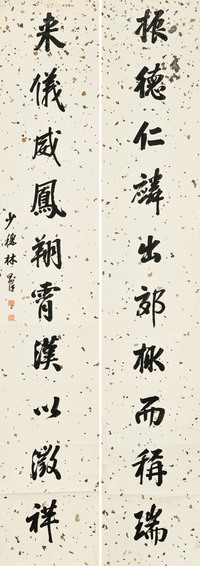 振德仁麟出郊棷而稱瑞
来儀威鳳翔霄漢以徵祥
少穆林則徐